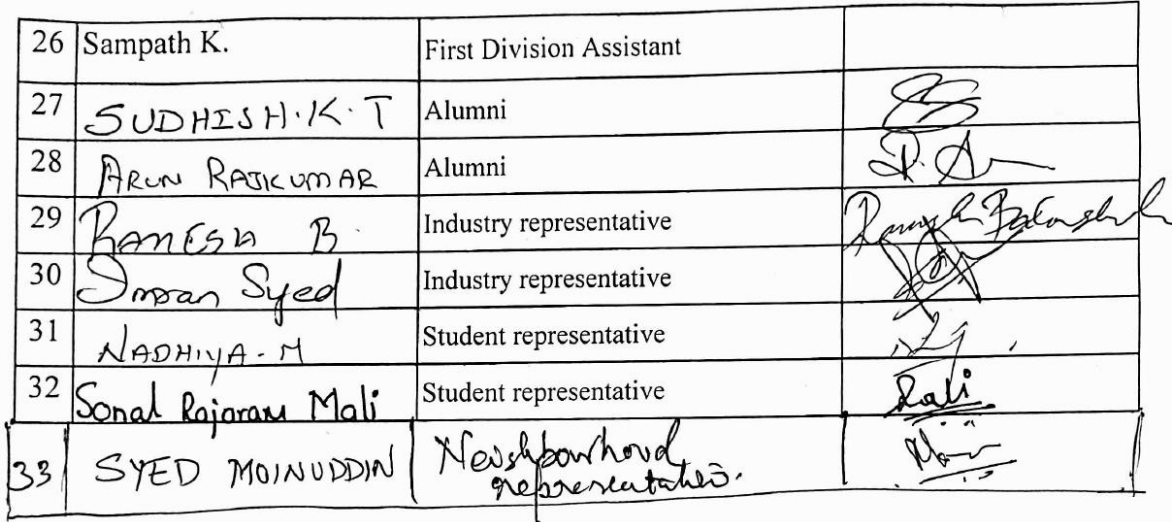 26 Sampath K. First Division Assistant
27 SUDHISH.K.T Alumni
28 ARUN RAJKUMAR Alumni
29 RAMESH B. Industry representative
30 Imran Syed Industry representative
31 NADHIYA-M Student representative
32 Sonal Rajaram Mali Student representative
33 SYED MOINUDDIN Neighbourhood
representative.